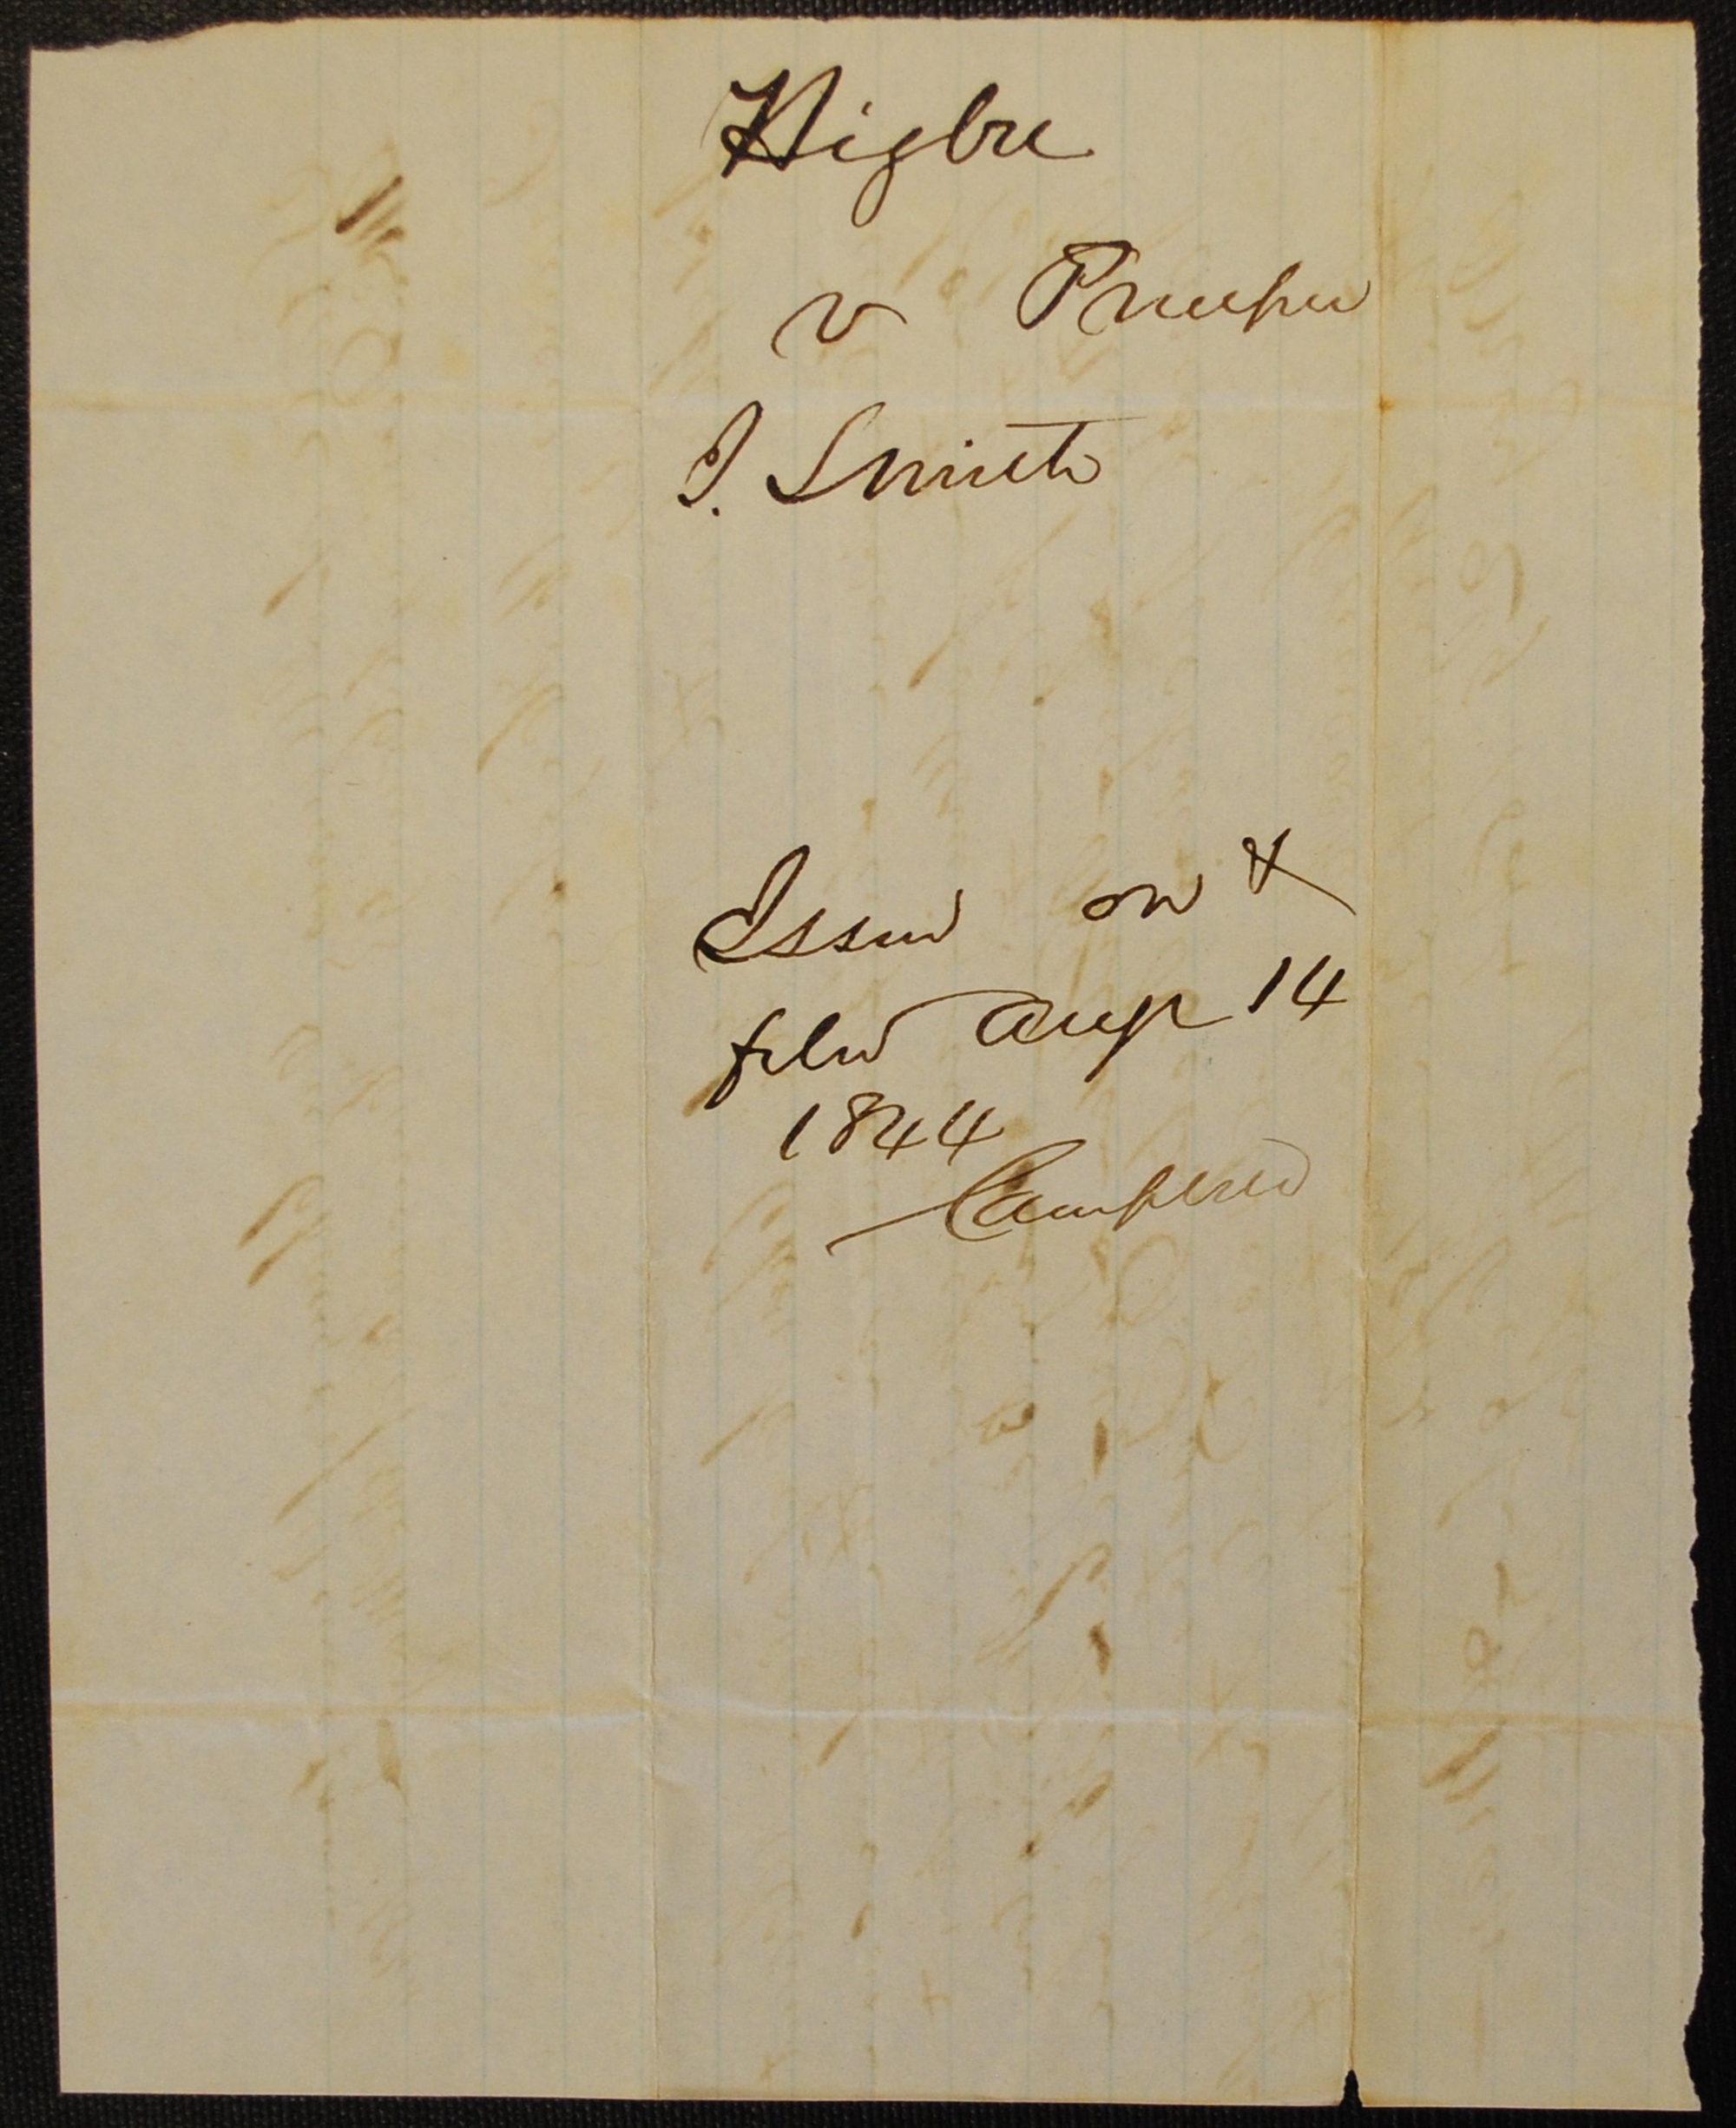 Higbee
v Precipe
J. Smith
Issued on &
filed Aug 14
1844